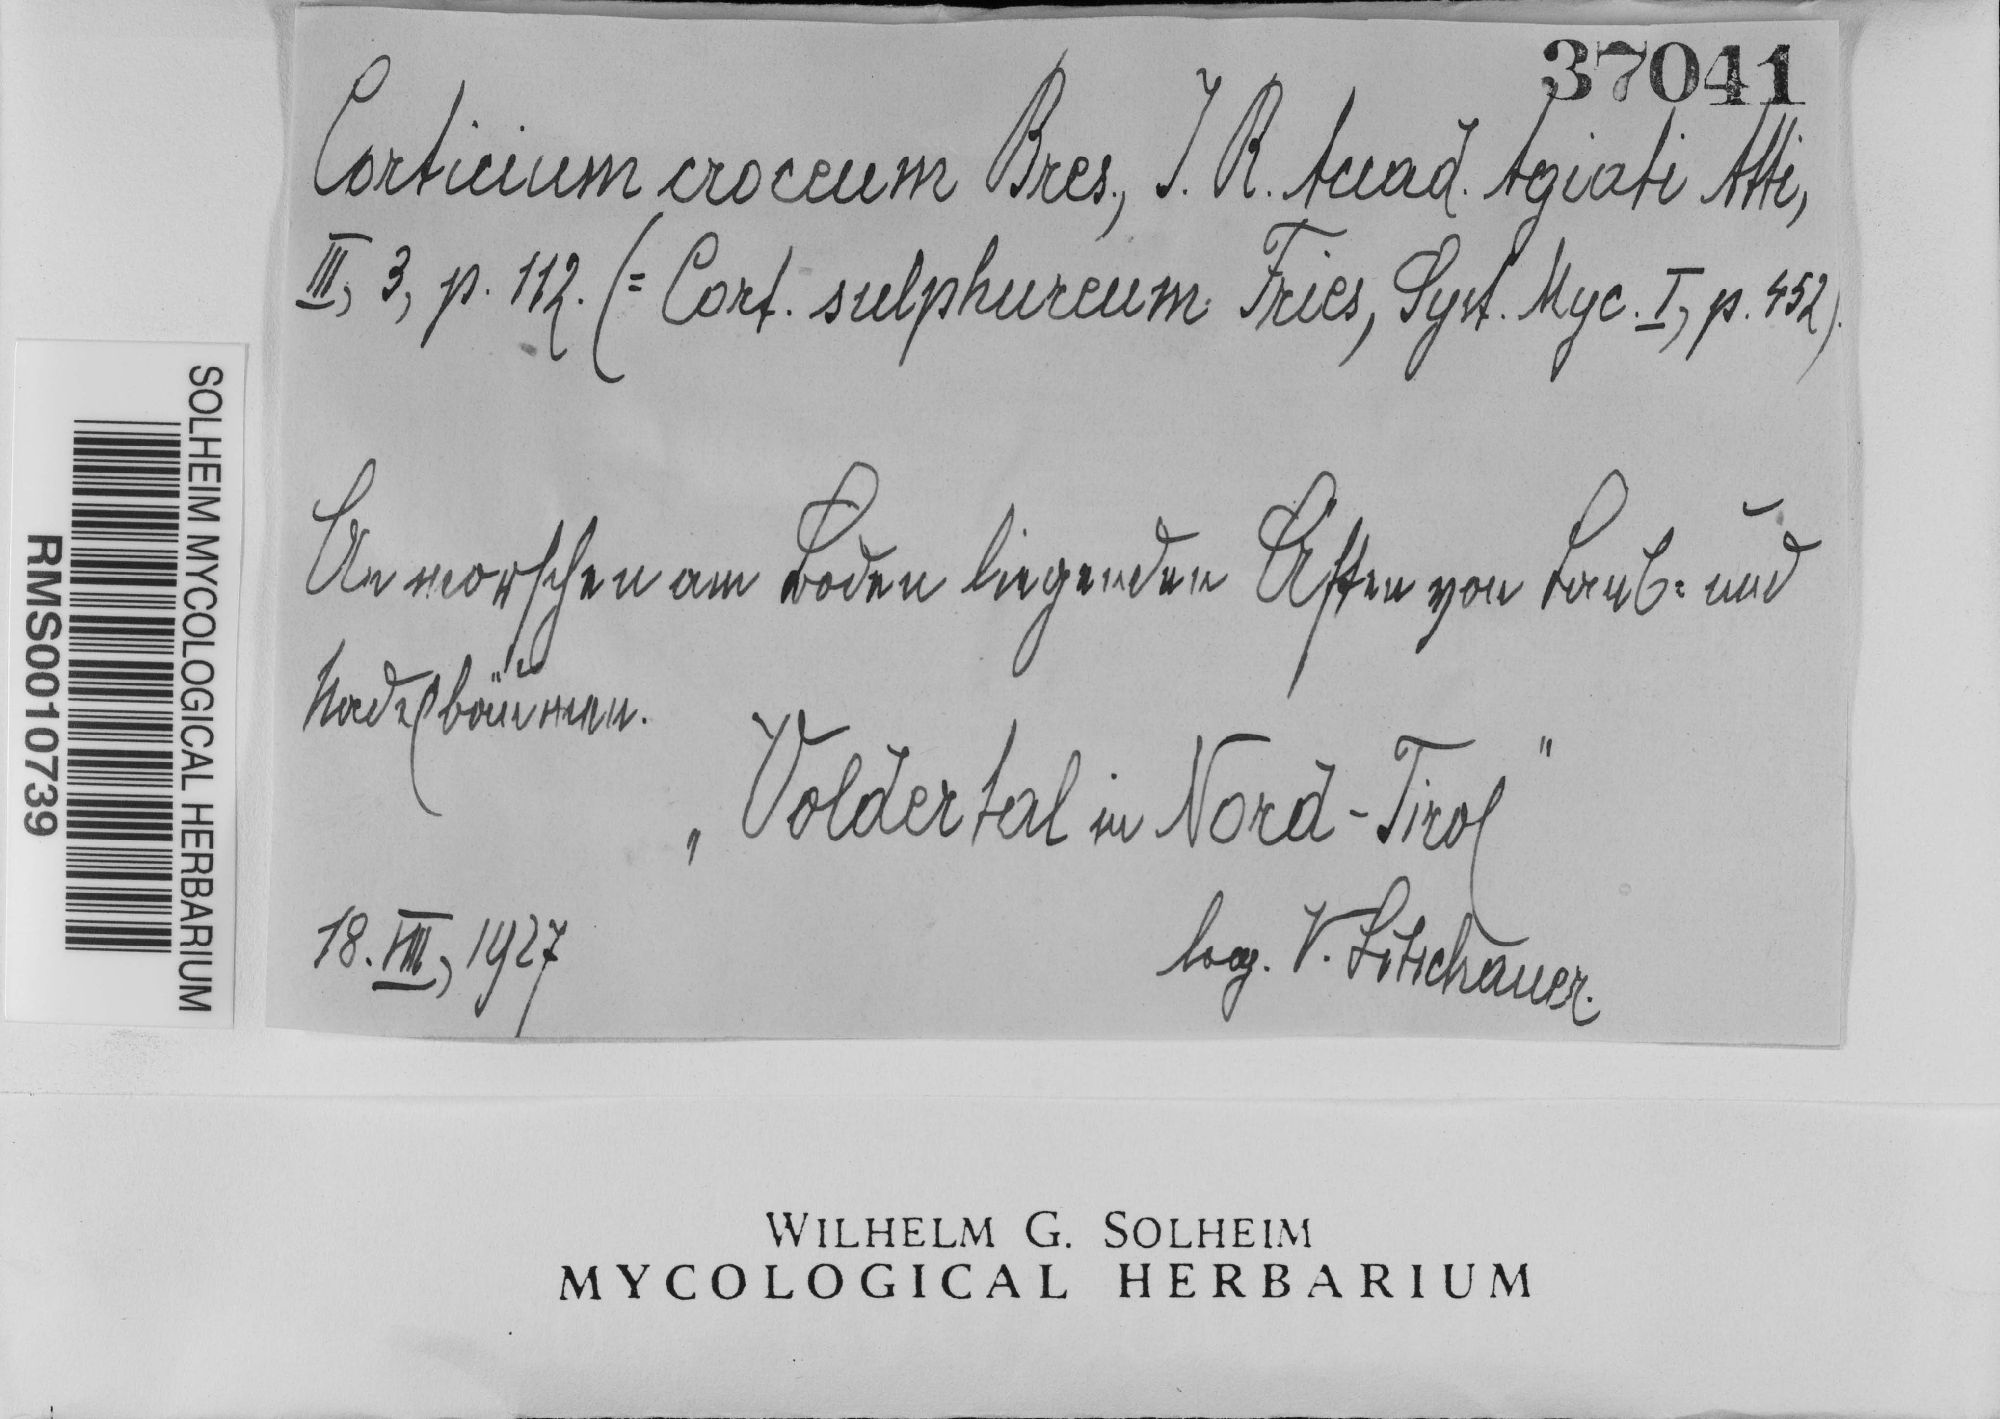 37041
Corticium croceum Bres., J. R. Acad. Agiati Atti,
III, 3, p. 112. (= Cort. sulphureum Fries, Syst. Myc. I, p. 452).
An morschen am Boden liegenden Ästen von Laub= und
Nadelbäumen.
„Voldertal in Nord-Tirol"
18. VIII, 1927
leg. V. Litschauer.
SOLHEIM MYCOLOGICAL HERBARIUM
RMS0010739
WILHELM G. SOLHEIM
MYCOLOGICAL HERBARIUM